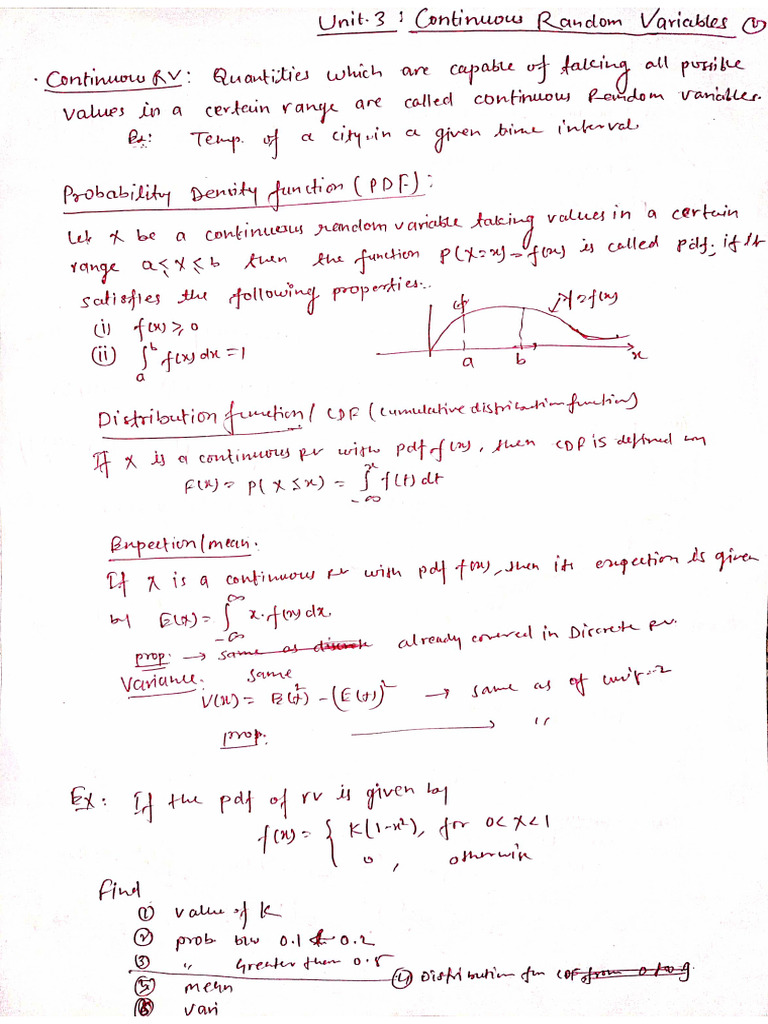 Unit.3 : Continuous Random Variables ①
. Continuous RV : Quantities which are capable of taking all possible
values in a certain range are called continuous Random variables.
Ex: Temp. of a city in a given time interval
Probability Density function (PDF) :
Let X be a continuous random variable taking values in a certain
range a ≤ X ≤ b then the function P(X=x) = f(x) is called pdf, if it
satisfies the following properties..
(i) f(x) ≥ 0
(ii) ∫_a^b f(x) dx = 1
y=f(x)
a b x
Distribution function / CDF (cumulative distribution function)
If X is a continuous RV with pdf f(x), then CDF is defined as
F(x) = P( X ≤ x) = ∫_{-∞}^x f(t) dt
Expection/mean.
If X is a continuous RV with pdf f(x), then its expection is given
by E(X) = ∫_{-∞}^∞ x. f(x) dx.
prop: → same as discrete already covered in Discrete RV.
Variance. same
V(x) = E(X²) - (E(X))² → same as of unit-2
prop. → "
Ex: If the pdf of rv is given by
f(x) = { K(1-x²), for 0<X<1
0 , otherwise
Find
① value of K
② prob b/w 0.1 & 0.2
③ " Greater than 0.5
④ Distribution fun CDF from 0 to
⑤ mean
⑥ vari